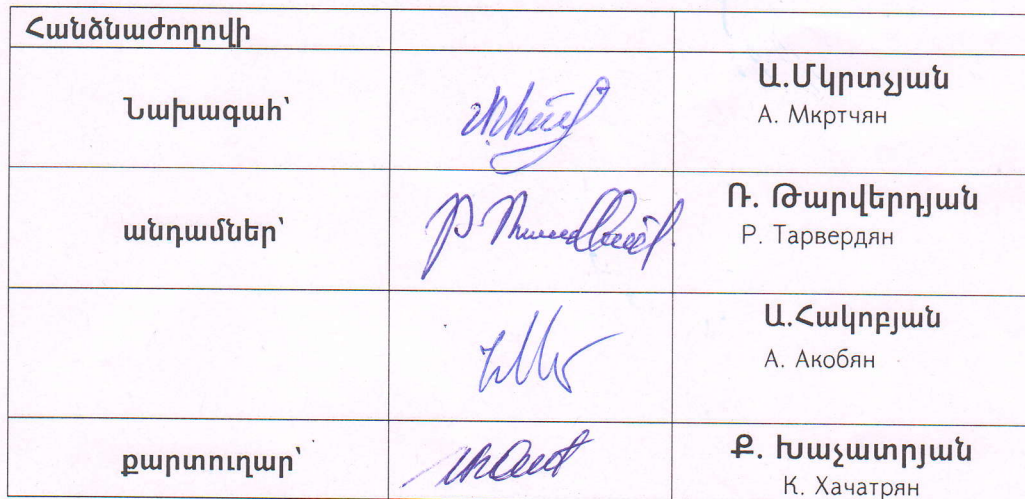 Հանձնաժողովի
Նախագահ՝
Ա.Մկրտչյան
А. Мкртчян
անդամներ՝
Ռ. Թարվերդյան
Р. Тарвердян
Ա.Հակոբյան
А. Акобян
քարտուղար՝
Ք. Խաչատրյան
К. Хачатрян